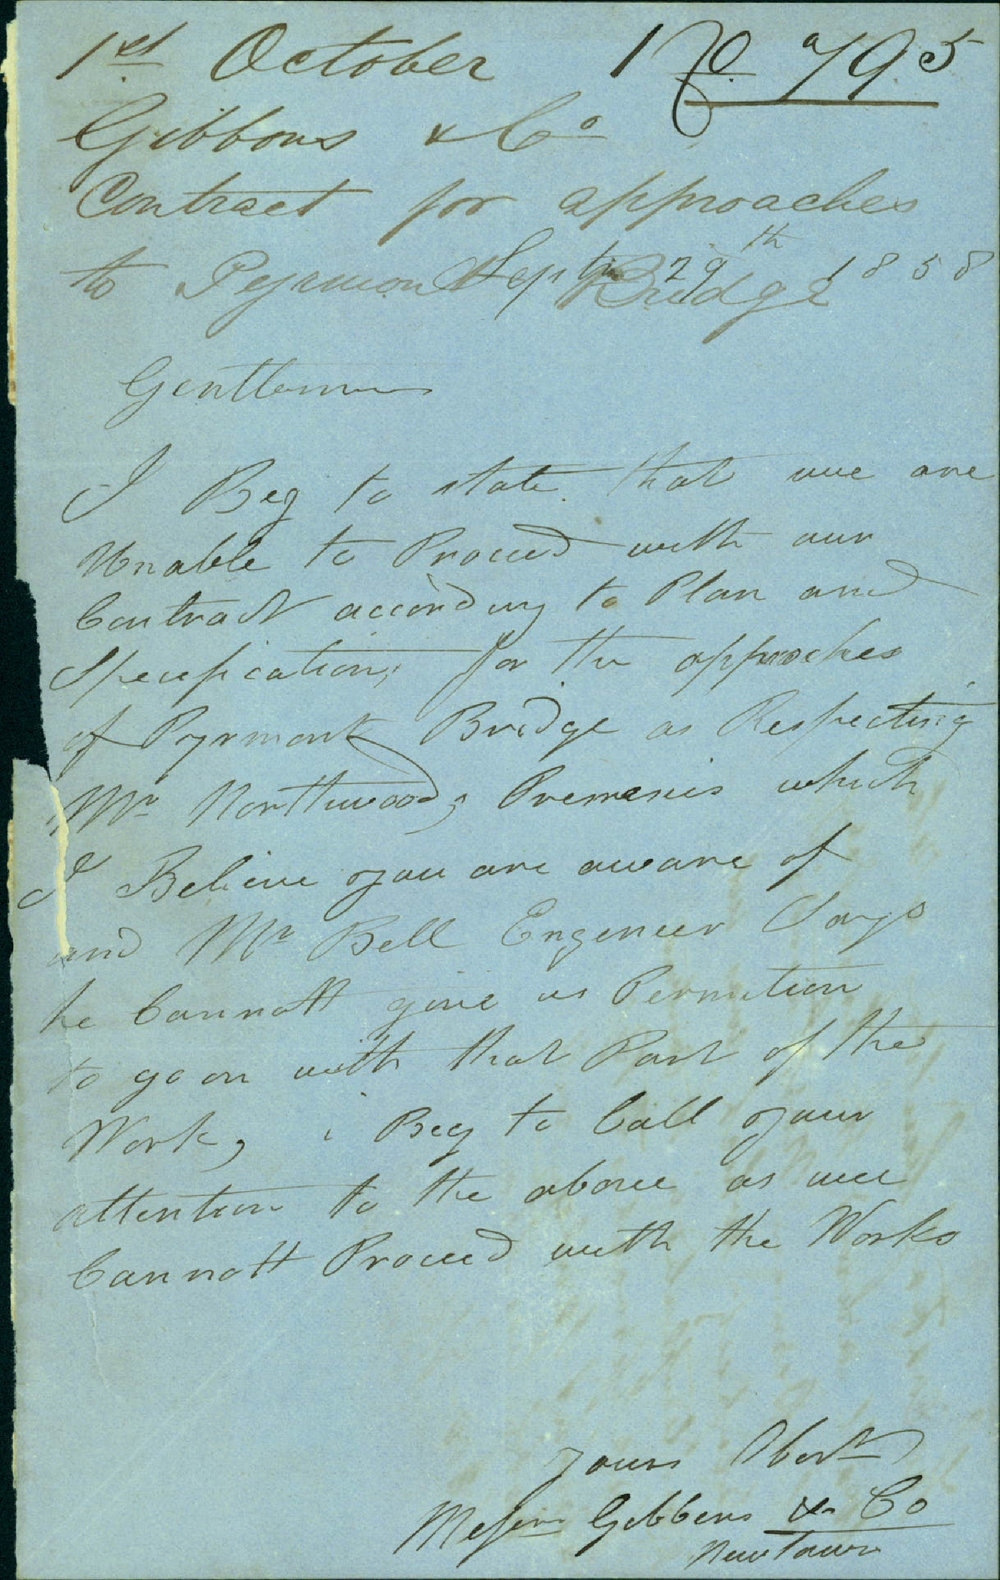 1st October No. 795
Gibbons & Co
Contract for approaches
to Pyrmont Bridge
Septbr 29th 1858
Gentlemen
I Beg to state that we are
Unable to Proceed with our
Contract according to Plan and
Specifications for the approches
of Pyrmont Bridge as Respecting
Mr Northwoods Premesis which
I Believe you are aware of
and Mr Bell Engeneer Says
he Cannott give us Permition
to go on with that Part of the
Work, i Beg to Call your
attention to the above as we
Cannott Proceed with the Works
yours Obert
Messrs Gibbens & Co
NewTown